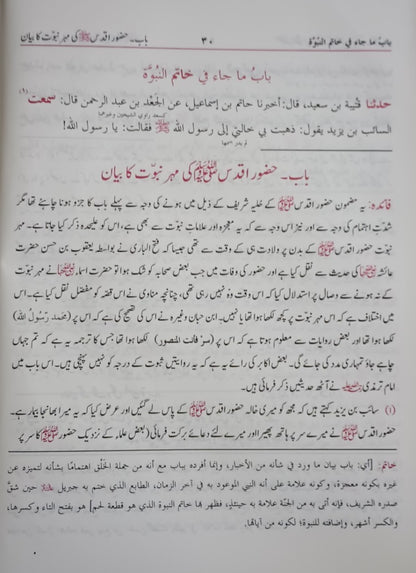 باب۔ حضور اقدس ﷺ کی مہر نبوت کا بیان
۳۰
باب ما جاء في خاتم النبوّة
بابُ ما جاء في خاتَم النبوَّة
حدثنا قُتيبة بن سعيد، قال: أخبرنا حاتم بن إسماعيل، عن الجَعْد بن عبد الرحمن قال: سمعت (١)
السائب بن يزيد يقول: ذهبت بي خالتي إلى رسول الله ﷺ فقالت: يا رسول الله!
باب۔ حضور اقدس ﷺ کی مہر نبوّت کا بیان
فائدہ: یہ مضمون حضور اقدس ﷺ کے حلیہ شریف کے ذیل میں ہونے کی وجہ سے پہلے باب کا جزو ہونا چاہئے تھا مگر
شدّتِ اہتمام کی وجہ سے اور نیز اس وجہ سے کہ یہ معجزہ اور علاماتِ نبوت سے بھی ہے، اس کو علیحدہ ذکر کیا جاتا ہے۔ مہر
نبوّت حضور اقدس ﷺ کے بدن پر ولادت ہی کے وقت سے تھی جیسا کہ فتح الباری نے بواسطہ یعقوب بن حسن حضرت
عائشہ کی حدیث سے نقل کیا ہے اور حضور کی وفات میں جب بعض صحابہ کو شک ہوا تو حضرت اسماء نے مہر نبوت
کے نہ ہونے سے وصال پر استدلال کیا کہ اس وقت وہ نہیں رہی تھی، چنانچہ مناوی نے اس قصہ کو مفصل نقل کیا ہے۔ اس
میں اختلاف ہے کہ اس مہر نبوت پر کچھ لکھا ہوا تھا یا نہیں۔ ابن حبان وغیرہ نے اس کی تصحیح کی ہے کہ اس پر (محمد رَسُولُ الله)
لکھا ہوا تھا اور بعض روایات سے معلوم ہوتا ہے کہ اس پر (سِر فأنت المنصور) لکھا ہوا تھا جس کا ترجمہ یہ ہے کہ تم جہاں
چاہے جاؤ تمہاری مدد کی جائے گی۔ بعض اکابر کی رائے یہ ہے کہ یہ روایتیں ثبوت کے درجہ کو نہیں پہنچی ہیں۔ اس باب میں
امام ترمذی نے آٹھ حدیثیں ذکر فرمائی ہیں۔
(۱) سائب بن یزید کہتے ہیں کہ مجھ کو میری خالہ حضور اقدس ﷺ کے پاس لے گئیں اور عرض کیا کہ یہ میرا بھانجا بیمار ہے۔
حضور اقدس ﷺ نے میرے سر پر ہاتھ پھیرا اور میرے لئے دعائے برکت فرمائی (بعض علماء کے نزدیک حضور ﷺ کا سر پر
خاتم: [أي: باب بيان ما ورد في شأنه من الأخبار، وإنما أفرده بباب مع أنه من جملة الخَلْق اهتمامًا بشأنه لتميزه عن
غيره بكونه معجزة، وكونه علامة على أنه النبي الموعود به في آخر الزمان، الطابع الذي ختم به جبريل حين شقّ
صدره الشريف، فإنه أتى به من الجنّة علامة به حينئذٍ، فظهر بها خاتم النبوة الذي هو قطعة لحم] هو بفتح التاء وكسرها،
والكسر أشهر، وإضافته للنبوة؛ لكونه من آياتها.